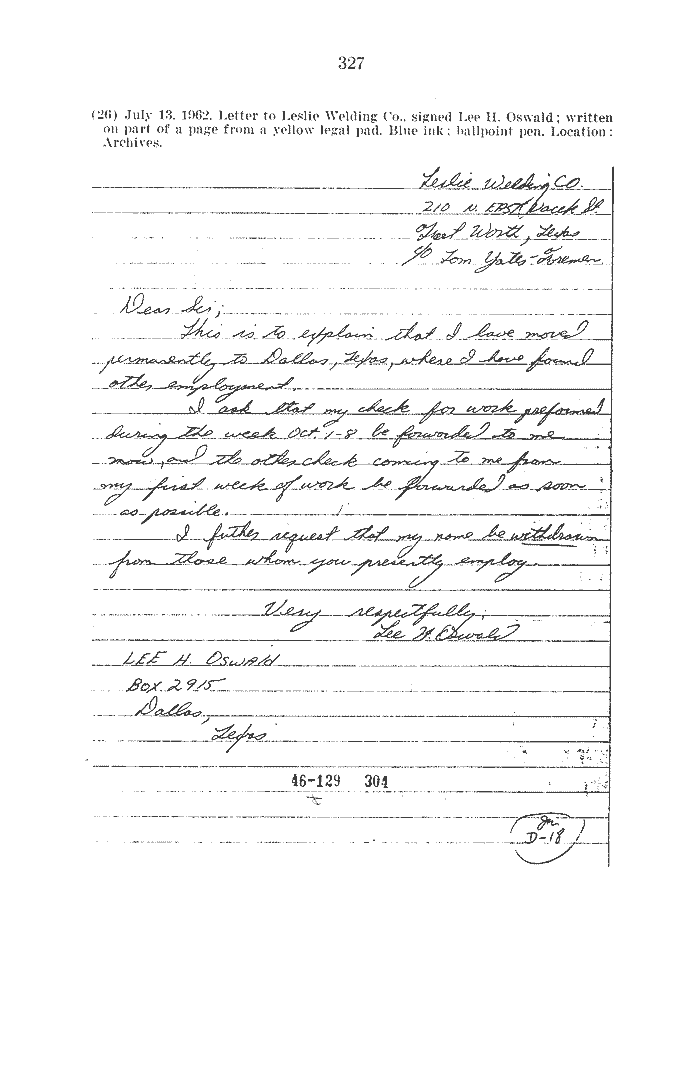 327
(26) July 13, 1962. Letter to Leslie Welding Co., signed Lee H. Oswald; written
on part of a page from a yellow legal pad. Blue ink; ballpoint pen. Location:
Archives.
Leslie Welding CO.
210 N. EAST St.
Fort Worth, Texas
c/o Tom Yates-Foremen
Dear Sir;
This is to explain that I have moved
permanently to Dallas, Texas, where I have found
other employment.
I ask that my check for work preformed
during the week Oct. 1-8 be forwarded to me
now, and the other check coming to me from
my first week of work be forwarded as soon
as possible.
I futher request that my name be withdrawn
from those whom you presently employ.
Very respectfully,
Lee H. Oswald
LEE H. OSWALD
BOX 2915
Dallas,
Texas
46-129 304
D-18